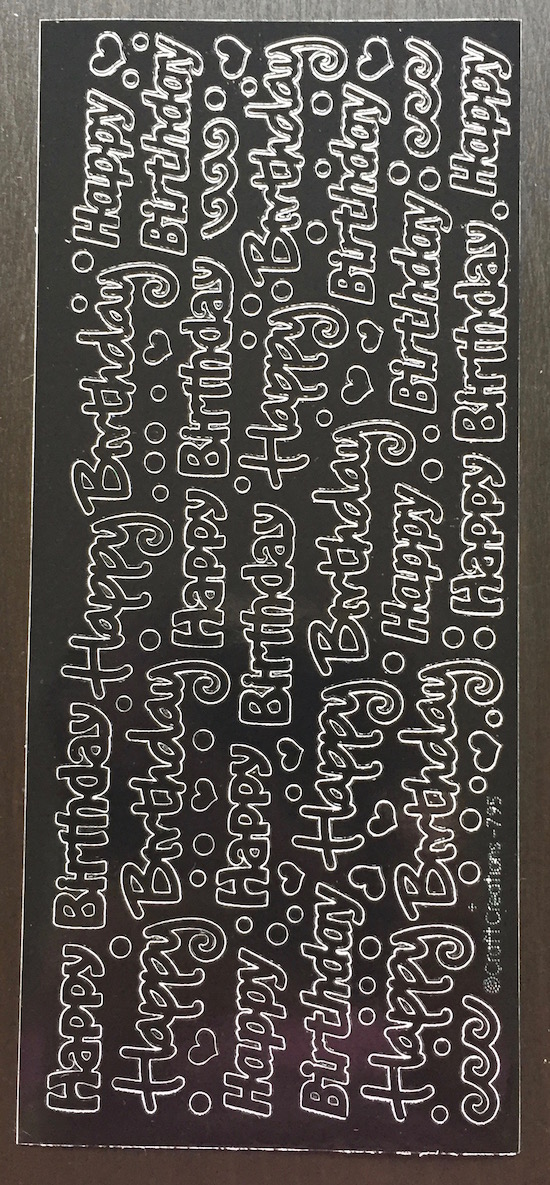 Happy Birthday
Happy Birthday
Happy
Birthday
Happy Birthday
Happy Birthday
Happy
Birthday
Happy Birthday
Happy Birthday
Happy Birthday
Birthday
Happy Birthday
Happy
Birthday
Happy Birthday
Happy
©Craft Creations - 795